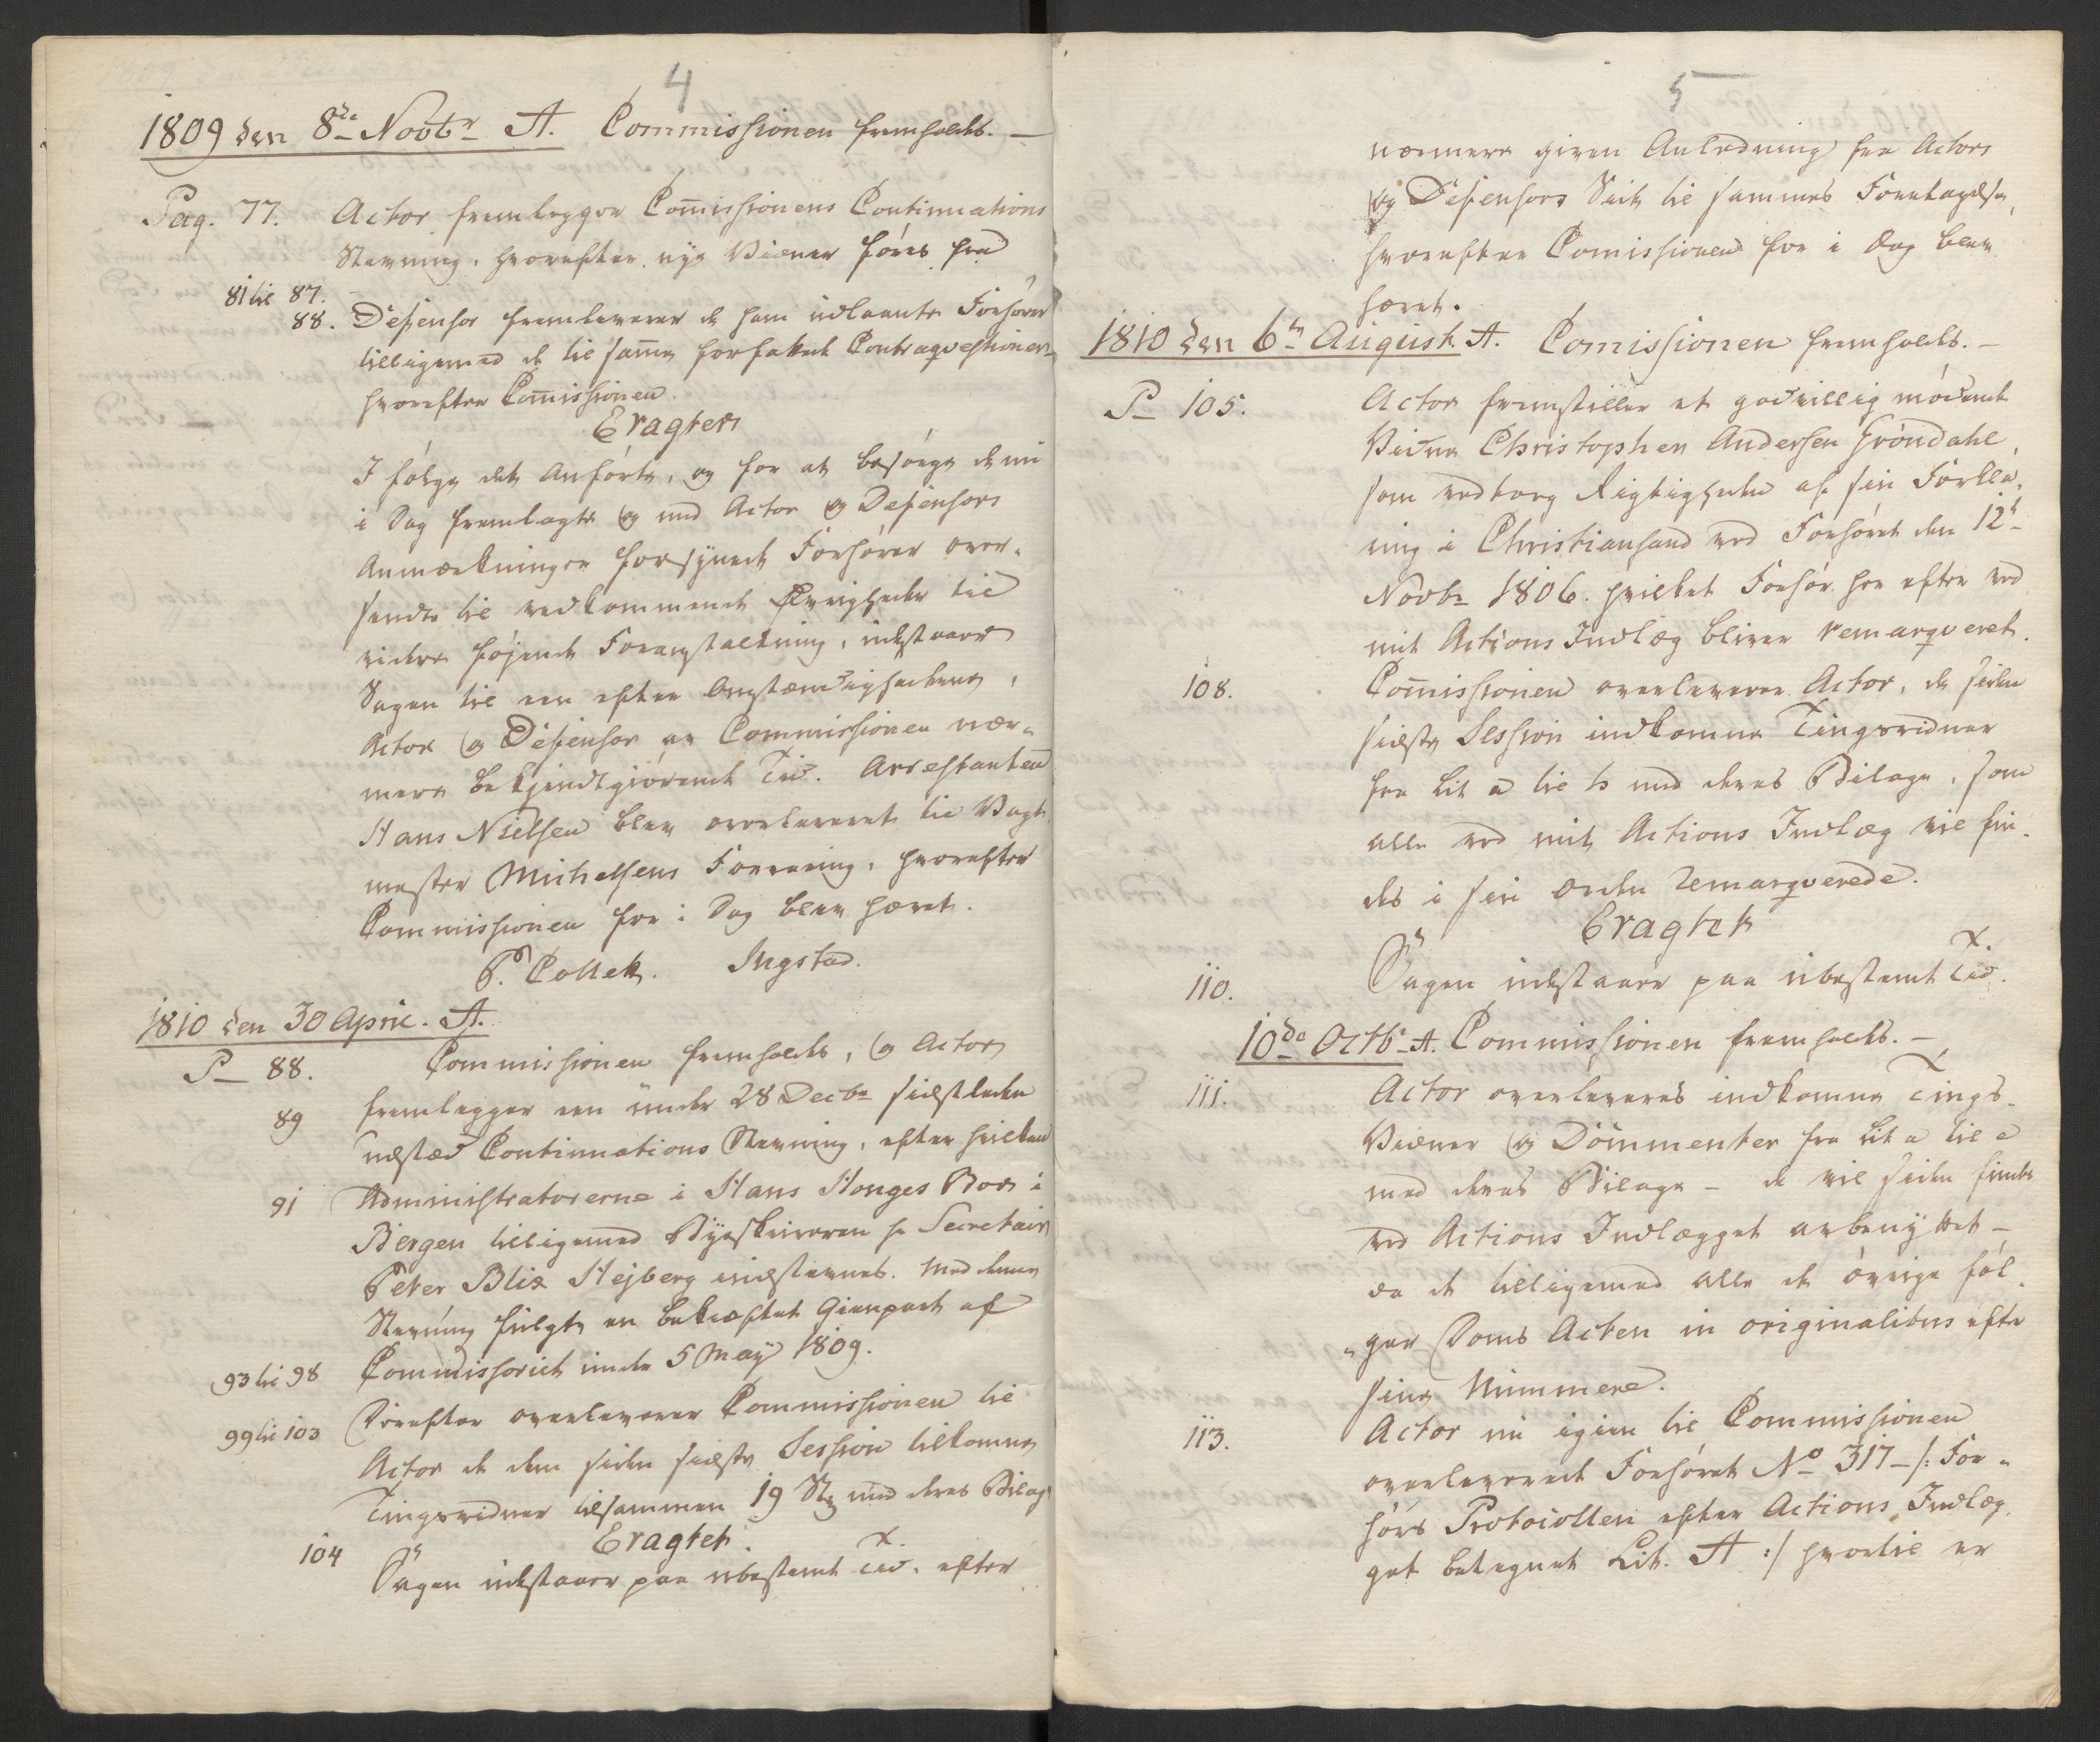 4
1809 den 8de Novbr A. Commissionen fremholdt. —
Pag. 77. Actor fremlegger Com̅issionens Continuations
Stevning, hvorefter nye Vidner føres fra
81 til 87.
88. Defensor fremleverer de ham udlaante Forhører
tilligemed de til sam̅e forfattede Contraqvestioner
hvorefter Com̅issionen
Eragter
I følge det Anførte, og for at besørge de nu
i Dag fremlagte og med Actor og Defensors
Anmærkninger forsynede Forhører over-
sendte til vedkommende Øvrigheder til
videre føjende Foranstaltning, udstaaer
Sagen til een efter Omstændighederne,
Actor og Defensor av Commissionen nær-
mere bekjendtgiørende Tid. Arrestanten
Hans Nielsen blev overleveret til Vagt-
mester Michelsens Forvaring, hvorefter
Commissionen for i Dag blev hævet.
P. Collett. Ingstad.
1810 den 30 April. A.
P— 88. Commissionen fremholdt, og Actor
89 fremlegger een under 28 Decbr sidstleden
udstæd Continuations Stevning, efter hvilken
91 Administratorerne i Hans Honges Boe i
Bergen tilligemed Byeskriveren hr Secretair
Peter Blix Hejberg indstevnes. Med denne
Stevning fulgte en bekræftet Gienpart af
93 til 98 Commissoriet under 5 May 1809.
99 til 103 Derefter overleverer Commissionen til
Actor de den siden sidste Session tilkomne
Tingsvidner tilsammen 19 St med deres Bilag
Eragtet.
104 Sagen udstaaer paa ubestemt Tid, efter
5
nærmere given Anledning fra Actors
og Defensors Side til sammes Foretagelse,
hvorefter Comissionen for i Dag blev
hævet.
1810 den 6te August. A. Comissionen fremholdt. —
P— 105. Actor fremstiller et godvillig mødende
Vidne Christopher Andersen Grøndahl
som vedtog Rigtigheden af sin Forkla-
ring i Christiansand ved Forhøret den 12te
Novbr 1806. hvilket Forhør her efter ved
mit Actions Indlæg bliver remarqveret.
108. Com̅issionen overleverer Actor, de siden
sidste Session indkomne Tingsvidner
fra Lit a til h med deres Bilage, som
alle ved mit Actions Indlæg vil fin-
des i sin Orden remarqverede.
Eragtet
110. Sagen udstaaer paa ubestemt Tid.
10de Octbr A. Commissionen fremholdt. —
111. Actor overleveres indkomne Tings-
Vidner og Documenter fra Lit a til e
med deres Bilage — de vil siden findes
ved Actions Indlægget avbenyttet —
da de tilligemed alle de øvrige føl-
ger Doms Acten in originalibus efter
sine Nummere.
113. Actor nu igien til Commissionen
overleverede Forhøret No 317 — /: For-
hørs Protocollen efter Actions Indlæg-
get betegnet Lit. A :/ hvortil er